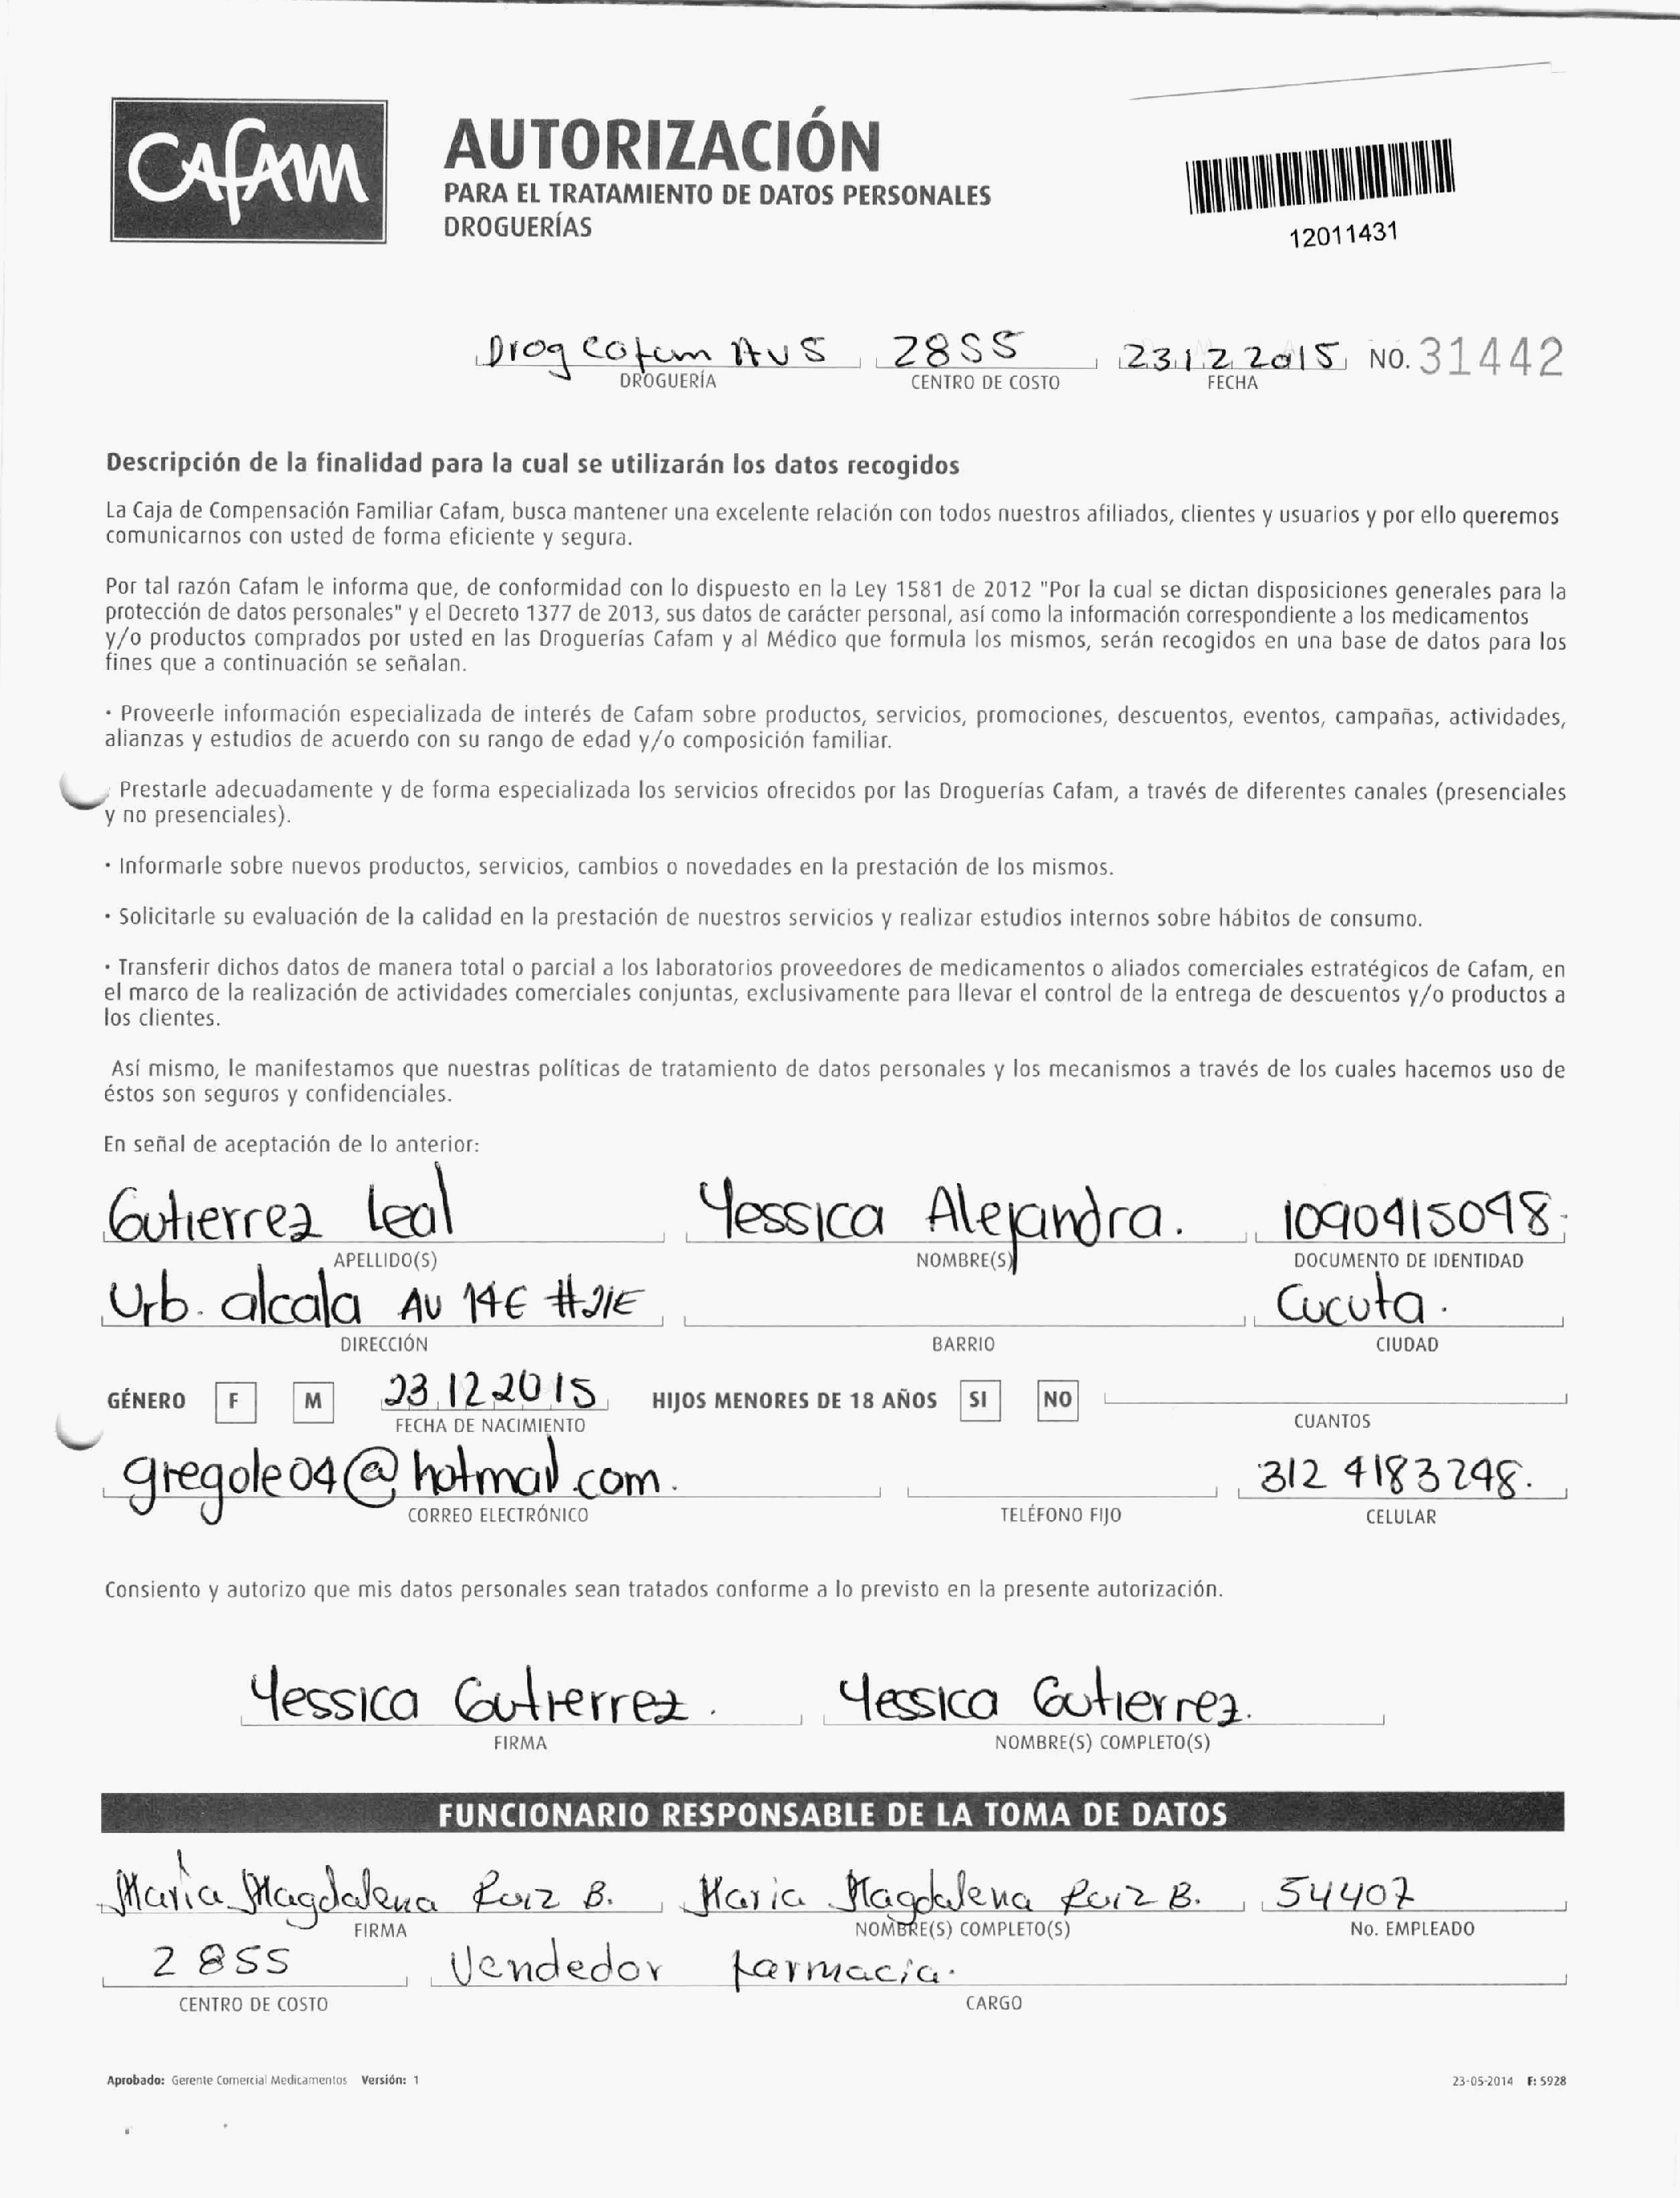 CAFAM
AUTORIZACIÓN
PARA EL TRATAMIENTO DE DATOS PERSONALES
DROGUERÍAS
12011431
Drog Cafam AV5 2855 23.12 2015 NO. 31442
DROGUERÍA CENTRO DE COSTO FECHA
Descripción de la finalidad para la cual se utilizarán los datos recogidos
La Caja de Compensación Familiar Cafam, busca mantener una excelente relación con todos nuestros afiliados, clientes y usuarios y por ello queremos
comunicarnos con usted de forma eficiente y segura.
Por tal razón Cafam le informa que, de conformidad con lo dispuesto en la Ley 1581 de 2012 "Por la cual se dictan disposiciones generales para la
protección de datos personales" y el Decreto 1377 de 2013, sus datos de carácter personal, así como la información correspondiente a los medicamentos
y/o productos comprados por usted en las Droguerías Cafam y al Médico que formula los mismos, serán recogidos en una base de datos para los
fines que a continuación se señalan.
· Proveerle información especializada de interés de Cafam sobre productos, servicios, promociones, descuentos, eventos, campañas, actividades,
alianzas y estudios de acuerdo con su rango de edad y/o composición familiar.
Prestarle adecuadamente y de forma especializada los servicios ofrecidos por las Droguerías Cafam, a través de diferentes canales (presenciales
y no presenciales).
· Informarle sobre nuevos productos, servicios, cambios o novedades en la prestación de los mismos.
· Solicitarle su evaluación de la calidad en la prestación de nuestros servicios y realizar estudios internos sobre hábitos de consumo.
· Transferir dichos datos de manera total o parcial a los laboratorios proveedores de medicamentos o aliados comerciales estratégicos de Cafam, en
el marco de la realización de actividades comerciales conjuntas, exclusivamente para llevar el control de la entrega de descuentos y/o productos a
los clientes.
Así mismo, le manifestamos que nuestras políticas de tratamiento de datos personales y los mecanismos a través de los cuales hacemos uso de
éstos son seguros y confidenciales.
En señal de aceptación de lo anterior:
Gutierrez Leal Yessica Alejandra. 1090415098.
APELLIDO(S) NOMBRE(S) DOCUMENTO DE IDENTIDAD
Urb. alcala AV 14E #21E Cucuta.
DIRECCIÓN BARRIO CIUDAD
GÉNERO F M 23.12.2015 HIJOS MENORES DE 18 AÑOS SI NO
FECHA DE NACIMIENTO CUANTOS
gregole04@hotmail.com. 312 4183298.
CORREO ELECTRÓNICO TELÉFONO FIJO CELULAR
Consiento y autorizo que mis datos personales sean tratados conforme a lo previsto en la presente autorización.
Yessica Gutierrez. Yessica Gutierrez.
FIRMA NOMBRE(S) COMPLETO(S)
FUNCIONARIO RESPONSABLE DE LA TOMA DE DATOS
Maria Magdalena Ruiz B. Maria Magdalena Ruiz B. 54407
FIRMA NOMBRE(S) COMPLETO(S) No. EMPLEADO
2855 Vendedor farmacia.
CENTRO DE COSTO CARGO
Aprobado: Gerente Comercial Medicamentos Versión: 1 23-05-2014 F: 5928